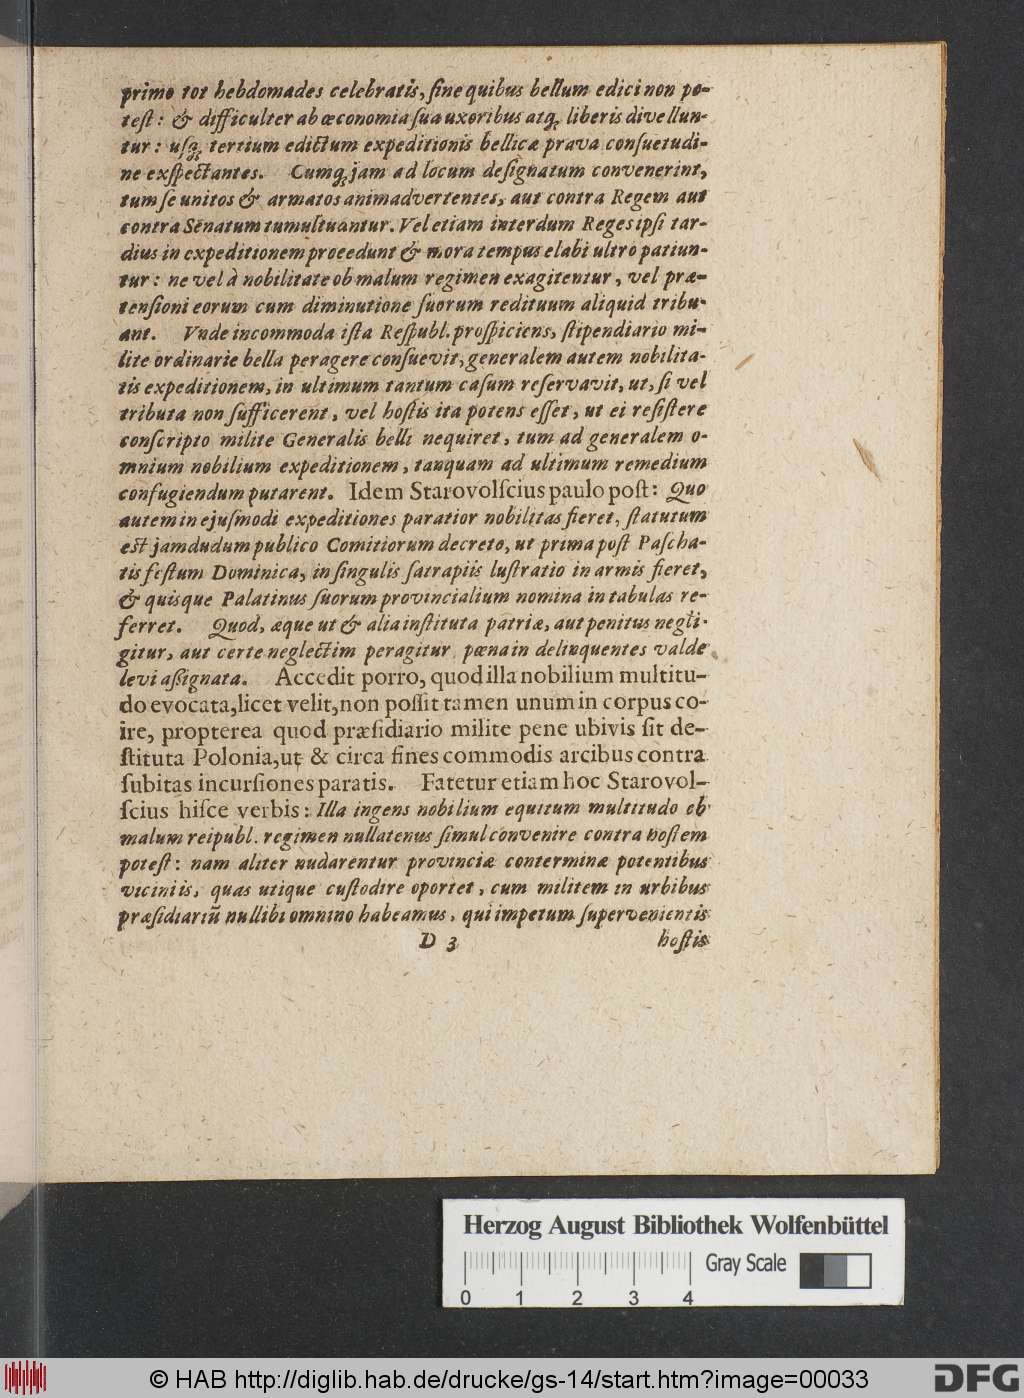 primo tot hebdomades celebratis, ſine quibus bellum edici non po-
teſt: & difficulter ab œconomia ſua uxoribus atq; liberis divellun-
tur: uſq; tertium edictum expeditionis bellicæ prava conſuetudi-
ne exſpectantes. Cumq; jam ad locum deſignatum convenerint,
tum ſe unitos & armatos animadvertentes, aut contra Regem aut
contra Senatum tumultuantur. Vel etiam interdum Reges ipſi tar-
dius in expeditionem procedunt & mora tempus elabi ultro patiun-
tur: ne vel à nobilitate ob malum regimen exagitentur, vel præ-
tenſioni eorum cum diminutione ſuorum redituum aliquid tribu-
ant. Vnde incommoda iſta Reſpubl. proſpiciens, ſtipendiario mi-
lite ordinarie bella peragere conſuevit, generalem autem nobilita-
tis expeditionem, in ultimum tantum caſum reſervavit, ut, ſi vel
tributa non ſufficerent, vel hoſtis ita potens eſſet, ut ei reſiſtere
conſcripto milite Generalis belli nequiret, tum ad generalem o-
mnium nobilium expeditionem, tanquam ad ultimum remedium
confugiendum putarent. Idem Starovolſcius paulo poſt: Quo
autem in ejuſmodi expeditiones paratior nobilitas fieret, ſtatutum
eſt jamdudum publico Comitiorum decreto, ut prima poſt Paſcha-
tis feſtum Dominica, in ſingulis ſatrapiis luſtratio in armis fieret,
& quisque Palatinus ſuorum provincialium nomina in tabulas re-
ferret. Quod, æque ut & alia inſtituta patriæ, aut penitus negli-
gitur, aut certe neglectim peragitur pœna in delinquentes valde
levi aſſignata. Accedit porro, quod illa nobilium multitu-
do evocata, licet velit, non poſſit tamen unum in corpus co-
ire, propterea quod præſidiario milite pene ubivis ſit de-
ſtituta Polonia, ut & circa fines commodis arcibus contra
ſubitas incurſiones paratis. Fatetur etiam hoc Starovol-
ſcius hiſce verbis: Illa ingens nobilium equitum multitudo ob
malum reipubl. regimen nullatenus ſimul convenire contra hoſtem
poteſt: nam aliter nudarentur provinciæ conterminæ potentibus
viciniis, quas utique cuſtodire oportet, cum militem in urbibus
præſidiariũ nullibi omnino habeamus, qui impetum ſupervenientis
D 3 hoſtis
Herzog August Bibliothek Wolfenbüttel
Gray Scale
0 1 2 3 4
© HAB http://diglib.hab.de/drucke/gs-14/start.htm?image=00033
DFG